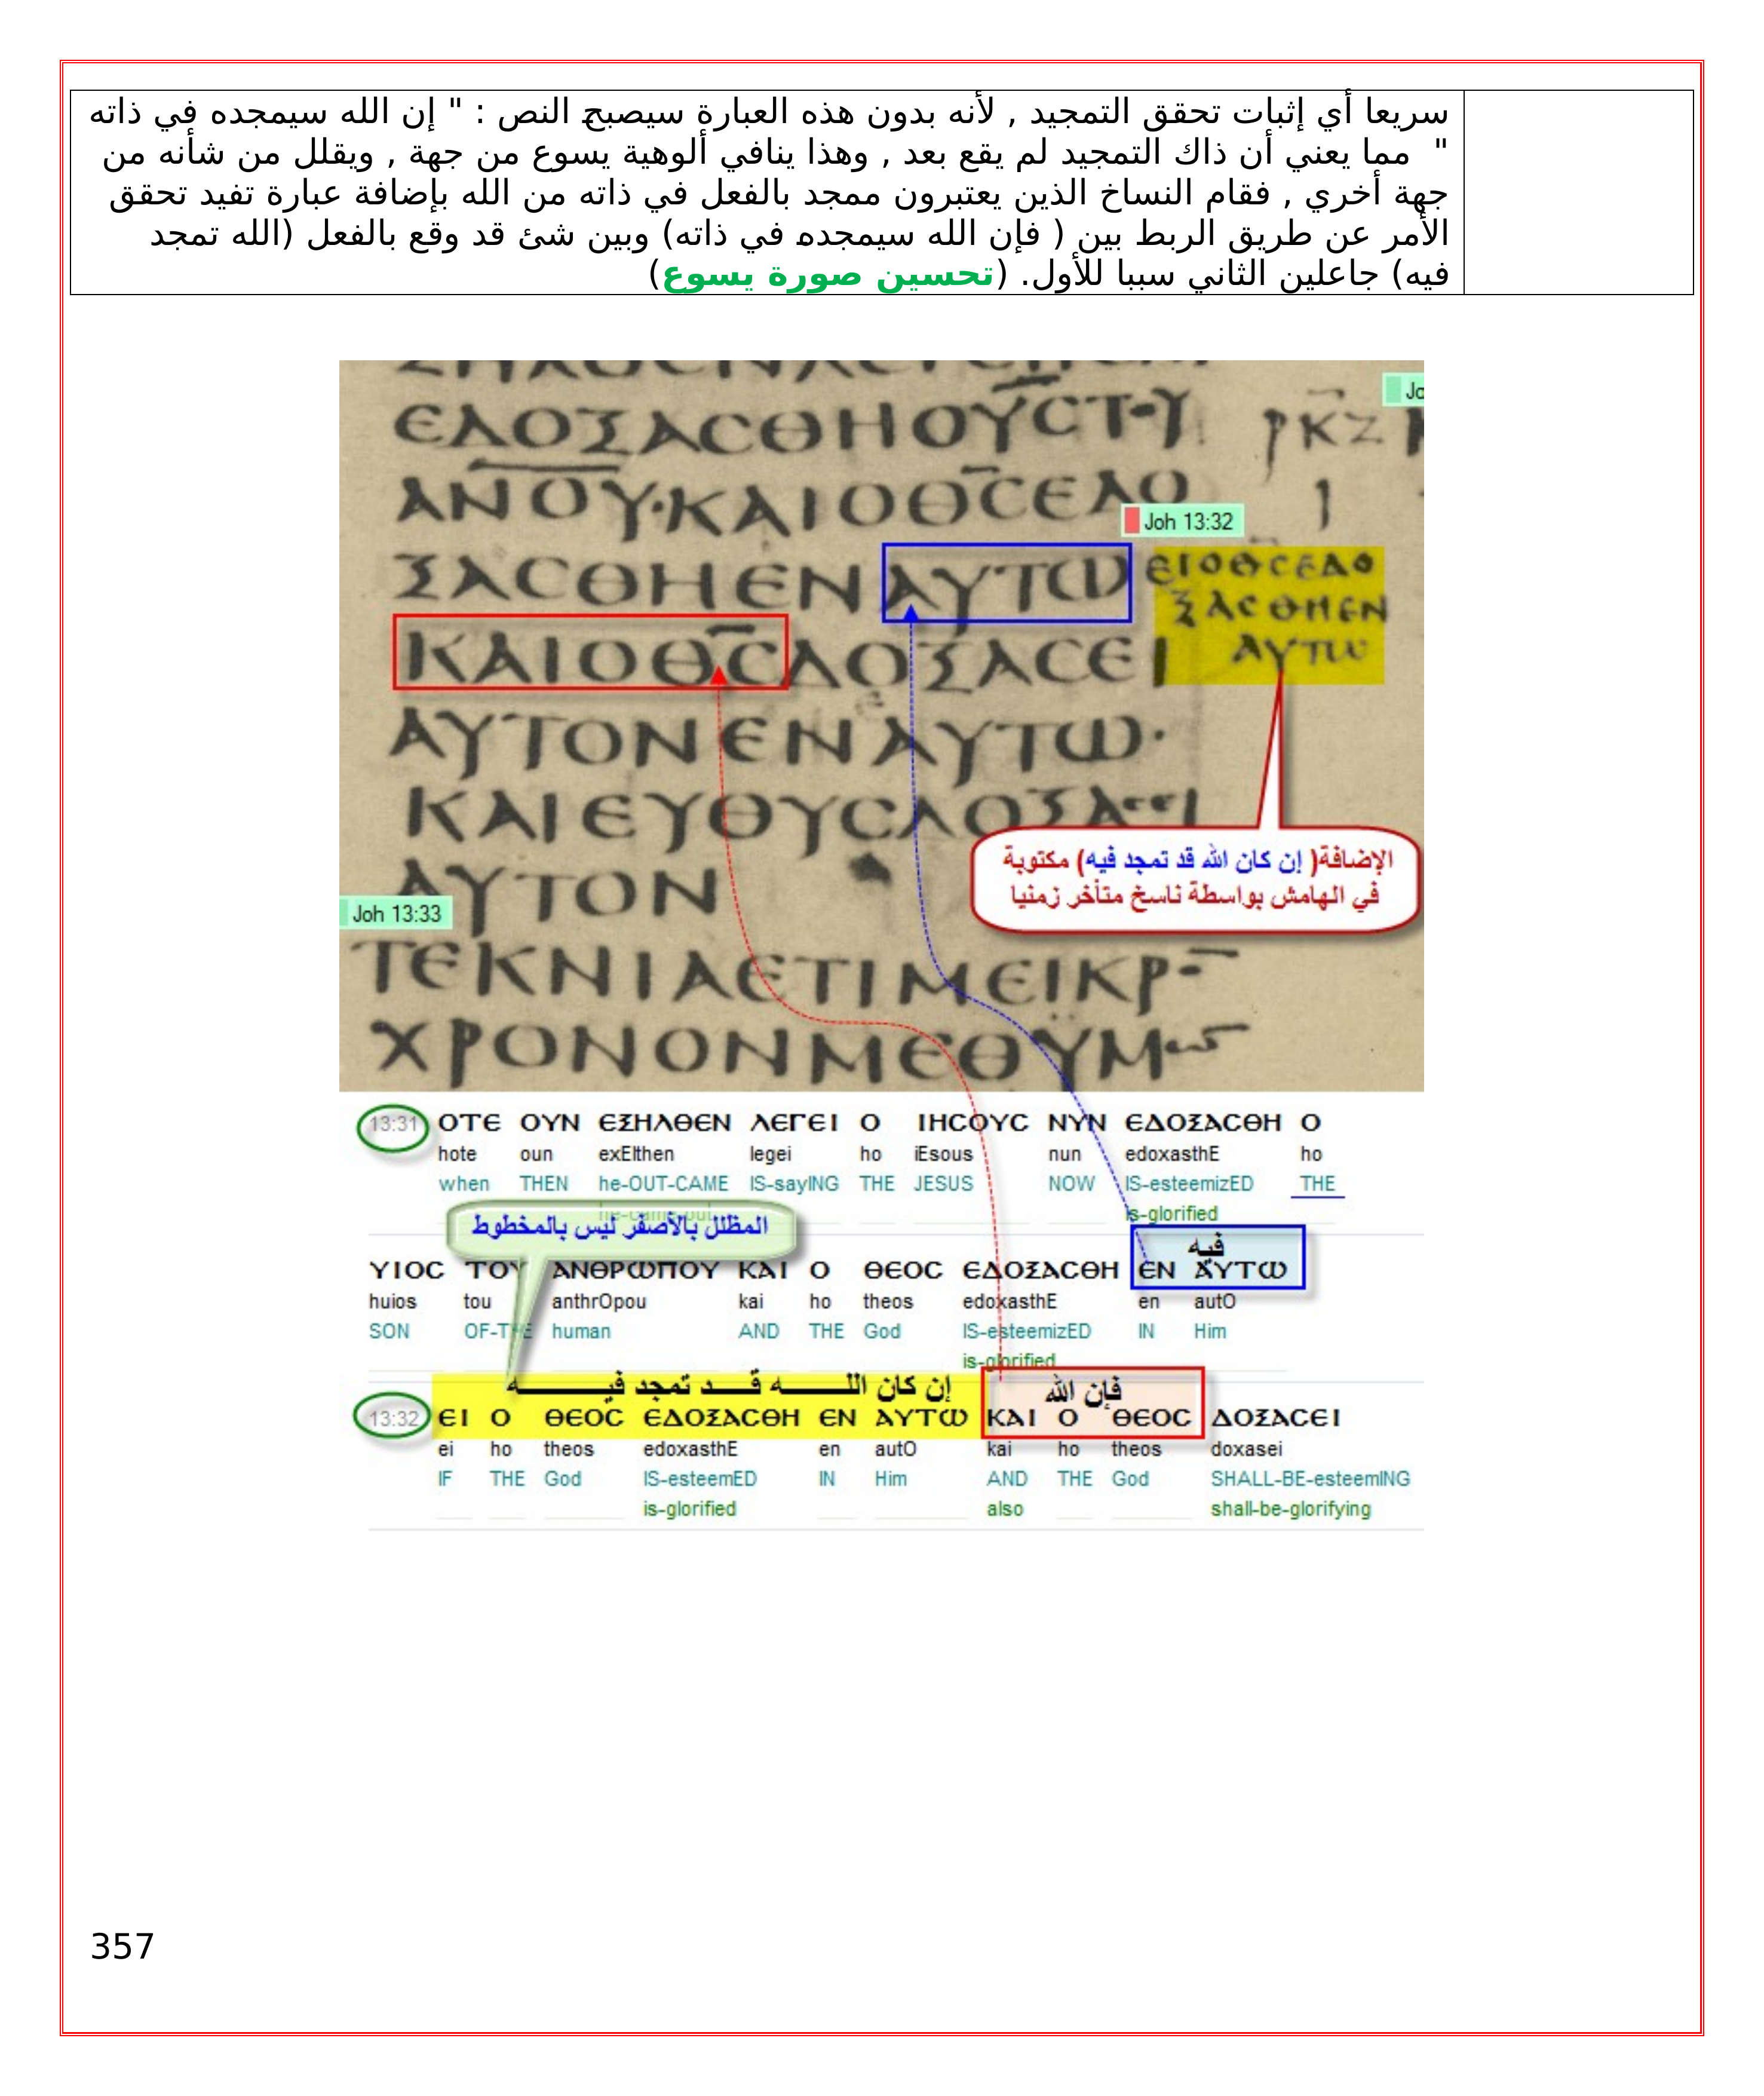 سريعا أي إثبات تحقق التمجيد , لأنه بدون هذه العبارة سيصبح النص : " إن الله سيمجده في ذاته
" مما يعني أن ذاك التمجيد لم يقع بعد , وهذا ينافي ألوهية يسوع من جهة , ويقلل من شأنه من
جهة أخري , فقام النساخ الذين يعتبرون ممجد بالفعل في ذاته من الله بإضافة عبارة تفيد تحقق
الأمر عن طريق الربط بين ( فإن الله سيمجده في ذاته) وبين شئ قد وقع بالفعل (الله تمجد
فيه) جاعلين الثاني سببا للأول. (تحسين صورة يسوع)
Jo
ΕΔΟΞΑCΘΗΟΥCΤΟΥ ΡΚΖ
ΑΝΟΥ·ΚΑΙΟΘCΕΔΟ Ι
Joh 13:32
ΞΑCΘΗΕΝΑΥΤΩ
ΕΙΟΘCΕΔΟ
ΞΑCΘΗΕΝ
ΑΥΤΩ
ΚΑΙΟΘCΔΟΞΑCΕΙ
ΑΥΤΟΝΕΝΑΥΤΩ·
ΚΑΙΕΥΘΥCΔΟΞΑCΕΙ
الإضافة( إن كان الله قد تمجد فيه) مكتوبة
في الهامش بواسطة ناسخ متأخر زمنيا
ΑΥΤΟΝ
Joh 13:33
ΤΕΚΝΙΑΕΤΙΜΕΙΚΡ
ΧΡΟΝΟΝΜΕΘΫΜΩ
13:31 ΟΤΕ ΟΥΝ ΕΞΗΛΘΕΝ ΛΕΓΕΙ Ο ΙΗCΟΥC ΝΥΝ ΕΔΟΞΑCΘΗ Ο
hote oun exElthen legei ho iEsous nun edoxasthE ho
when THEN he-OUT-CAME IS-sayING THE JESUS NOW IS-esteemizED THE
he-came-out is-glorified
المظلل بالأصفر ليس بالمخطوط
فيه
ΥΙΟC ΤΟΥ ΑΝΘΡΩΠΟΥ ΚΑΙ Ο ΘΕΟC ΕΔΟΞΑCΘΗ ΕΝ ΑΥΤΩ
huios tou anthrOpou kai ho theos edoxasthE en autO
SON OF-THE human AND THE God IS-esteemizED IN Him
is-glorified
إن كان اللـــــه قـــد تمجد فيـــــــه فإن الله
13:32 ΕΙ Ο ΘΕΟC ΕΔΟΞΑCΘΗ ΕΝ ΑΥΤΩ ΚΑΙ Ο ΘΕΟC ΔΟΞΑCΕΙ
ei ho theos edoxasthE en autO kai ho theos doxasei
IF THE God IS-esteemED IN Him AND THE God SHALL-BE-esteemING
is-glorified also shall-be-glorifying
357